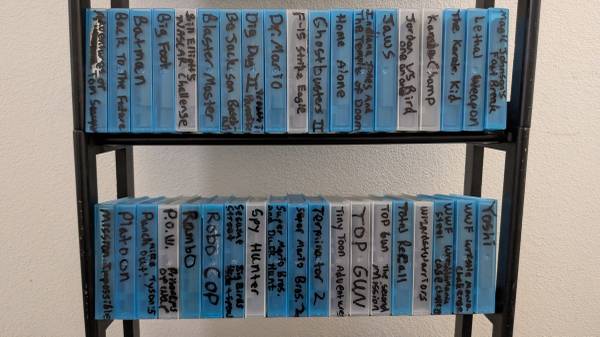 Back To The Future
Batman
Big Foot
Bill Elliott's
NASCAR Challenge
Blaster Master
Bo Jackson Baseball
Dig Dug II
Dr. Mario
F-15 Strike Eagle
Ghostbusters II
Home Alone
Indiana Jones and
The Temple of Doom
Jaws
Jordan vs Bird
one on one
Karate Champ
The Karate Kid
Lethal Weapon
Magic Johnson's
Fast Break
Mission Impossible
Platoon
Mike Tyson's
Punch Out!!
P.O.W. Prisoners
of war
Rambo
Robo Cop
Sesame
Street
Spy Hunter
Super Mario Bros.
and Duck Hunt
Super Mario Bros. 2
Terminator 2
Tiny Toon Adventures
TOP GUN
Top Gun The Second
Mission
Total Recall
Wizards & Warriors
WWF Wrestlemania
Steel Cage Challenge
WWF Wrestlemania
Challenge
Yoshi